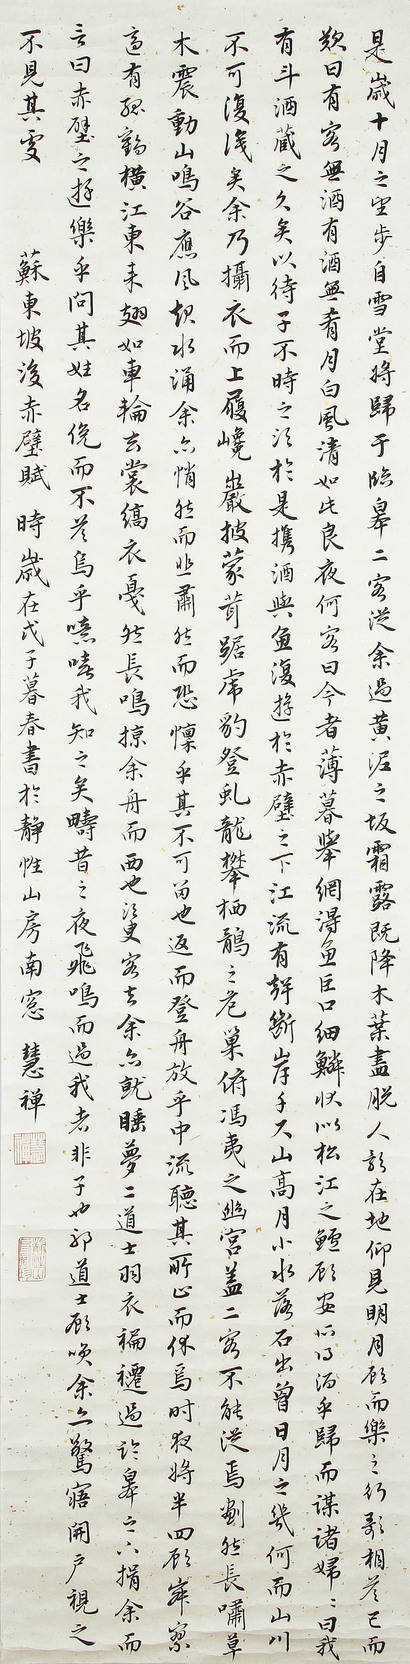 是歲十月之望步自雪堂將歸于臨皋二客從余過黃泥之坂霜露既降木葉盡脫人影在地仰見明月顧而樂之行歌相答已而
歎曰有客無酒有酒無肴月白風清如此良夜何客曰今者薄暮舉網得魚巨口細鱗狀似松江之鱸顧安所得酒乎歸而謀諸婦〻曰我
有斗酒藏之久矣以待子不時之須於是攜酒與魚復遊於赤壁之下江流有聲斷岸千尺山高月小水落石出曾日月之幾何而山川
不可復識矣余乃攝衣而上履巉巖披蒙茸踞虎豹登虬龍攀栖鶻之危巢俯馮夷之幽宮蓋二客不能從焉劃然長嘯草
木震動山鳴谷應風起水涌余亦悄然而悲肅然而恐懍乎其不可留也返而登舟放乎中流聽其所止而休焉時夜將半四顧寂寥
適有孤鶴橫江東來翅如車輪玄裳縞衣戛然長鳴掠余舟而西也須臾客去余亦就睡夢二道士羽衣褊褼過臨皋之下揖余而
言曰赤壁之遊樂乎問其姓名俛而不答烏乎噫嘻我知之矣疇昔之夜飛鳴而過我者非子也邪道士顧笑余亦驚寤開戶視之
不見其處 蘇東坡後赤壁賦 時歲在戊子暮春書於靜性山房南窓 慧禅